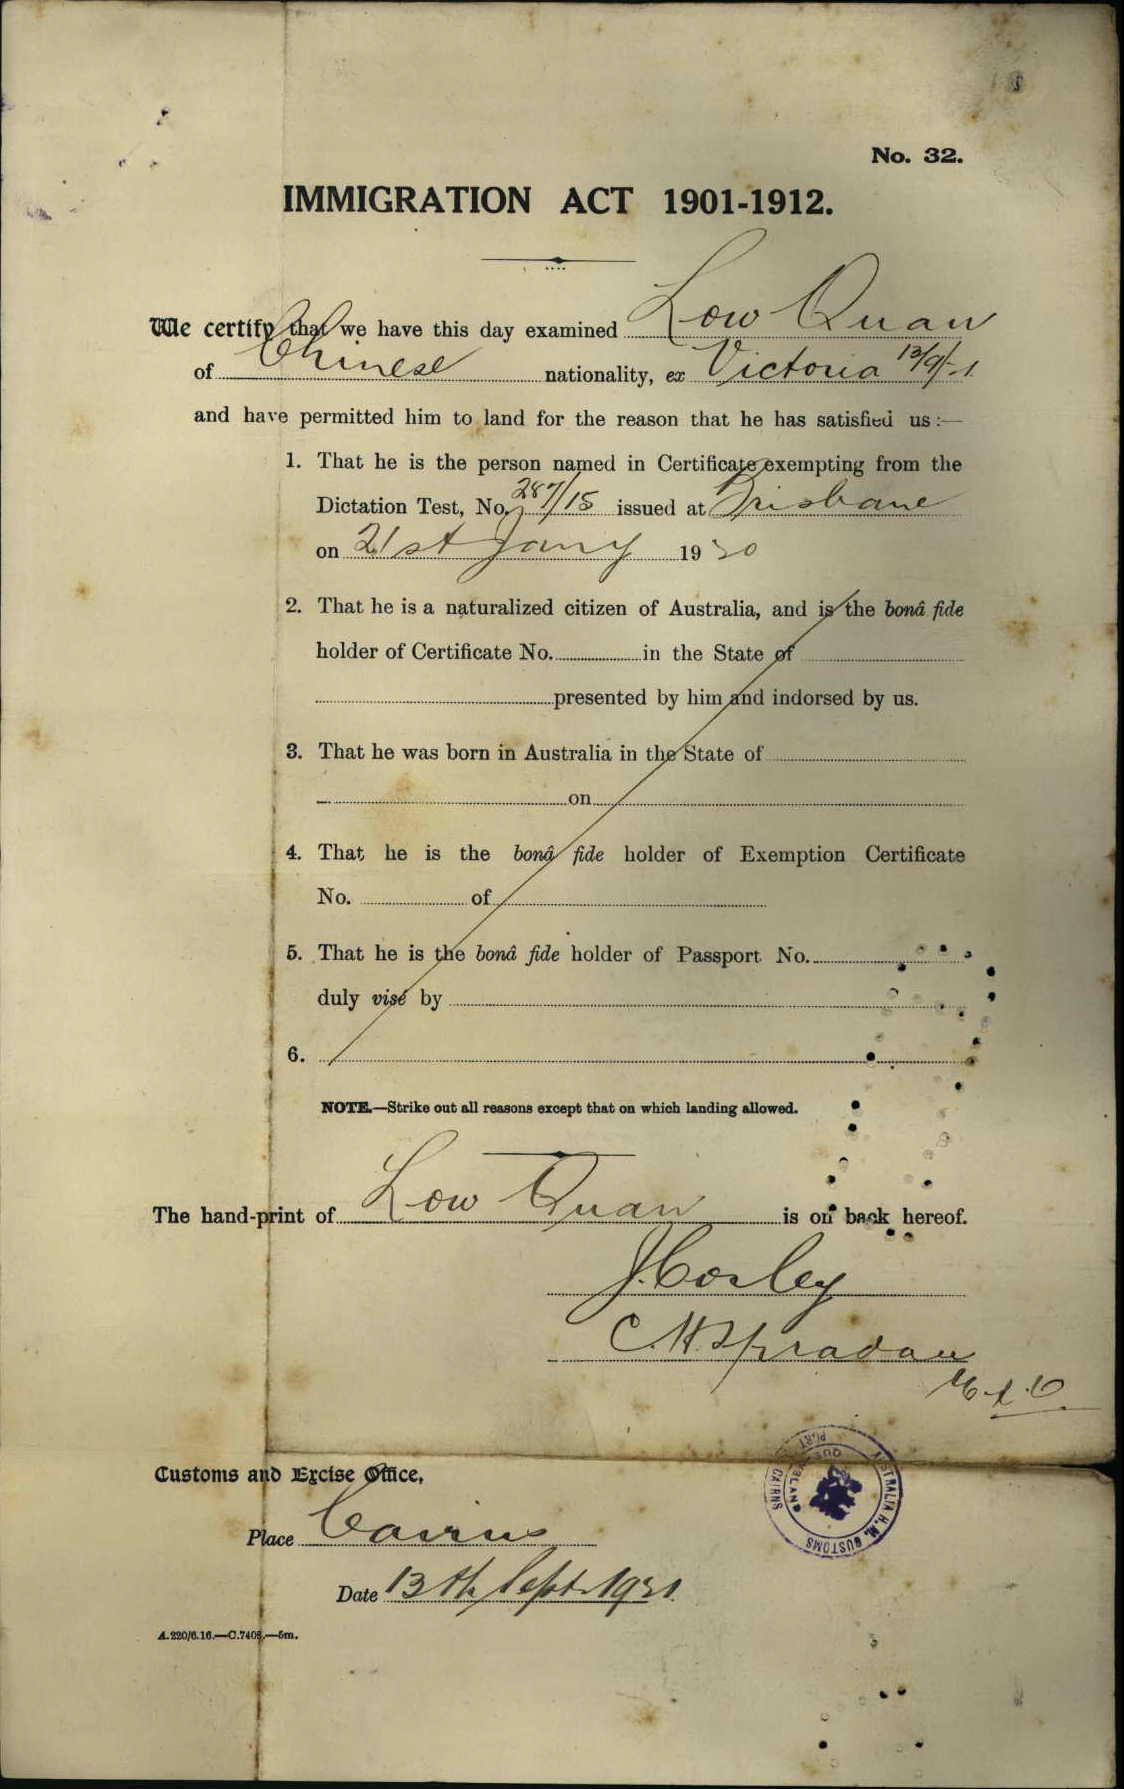 No. 32.
IMMIGRATION ACT 1901-1912.
We certify that we have this day examined Low Quan
of Chinese nationality, ex Victoria 13/9/
and have permitted him to land for the reason that he has satisfied us :—
1. That he is the person named in Certificate exempting from the
Dictation Test, No. 287/15 issued at Brisbane
on 21st Jany 19
2. That he is a naturalized citizen of Australia, and is the bonâ fide
holder of Certificate No. in the State of
presented by him and indorsed by us.
3. That he was born in Australia in the State of
on
4. That he is the bonâ fide holder of Exemption Certificate
No. of
5. That he is the bonâ fide holder of Passport No.
duly visé by
6.
NOTE.—Strike out all reasons except that on which landing allowed.
The hand-print of Low Quan is on back hereof.
C.H.
AUSTRALIA H.M. CUSTOMS
PORT CAIRNS
QUEENSLAND
Customs and Excise Office,
Place Cairns
Date 13th Sept.
A.220/6.16.—C.7408.—5m.